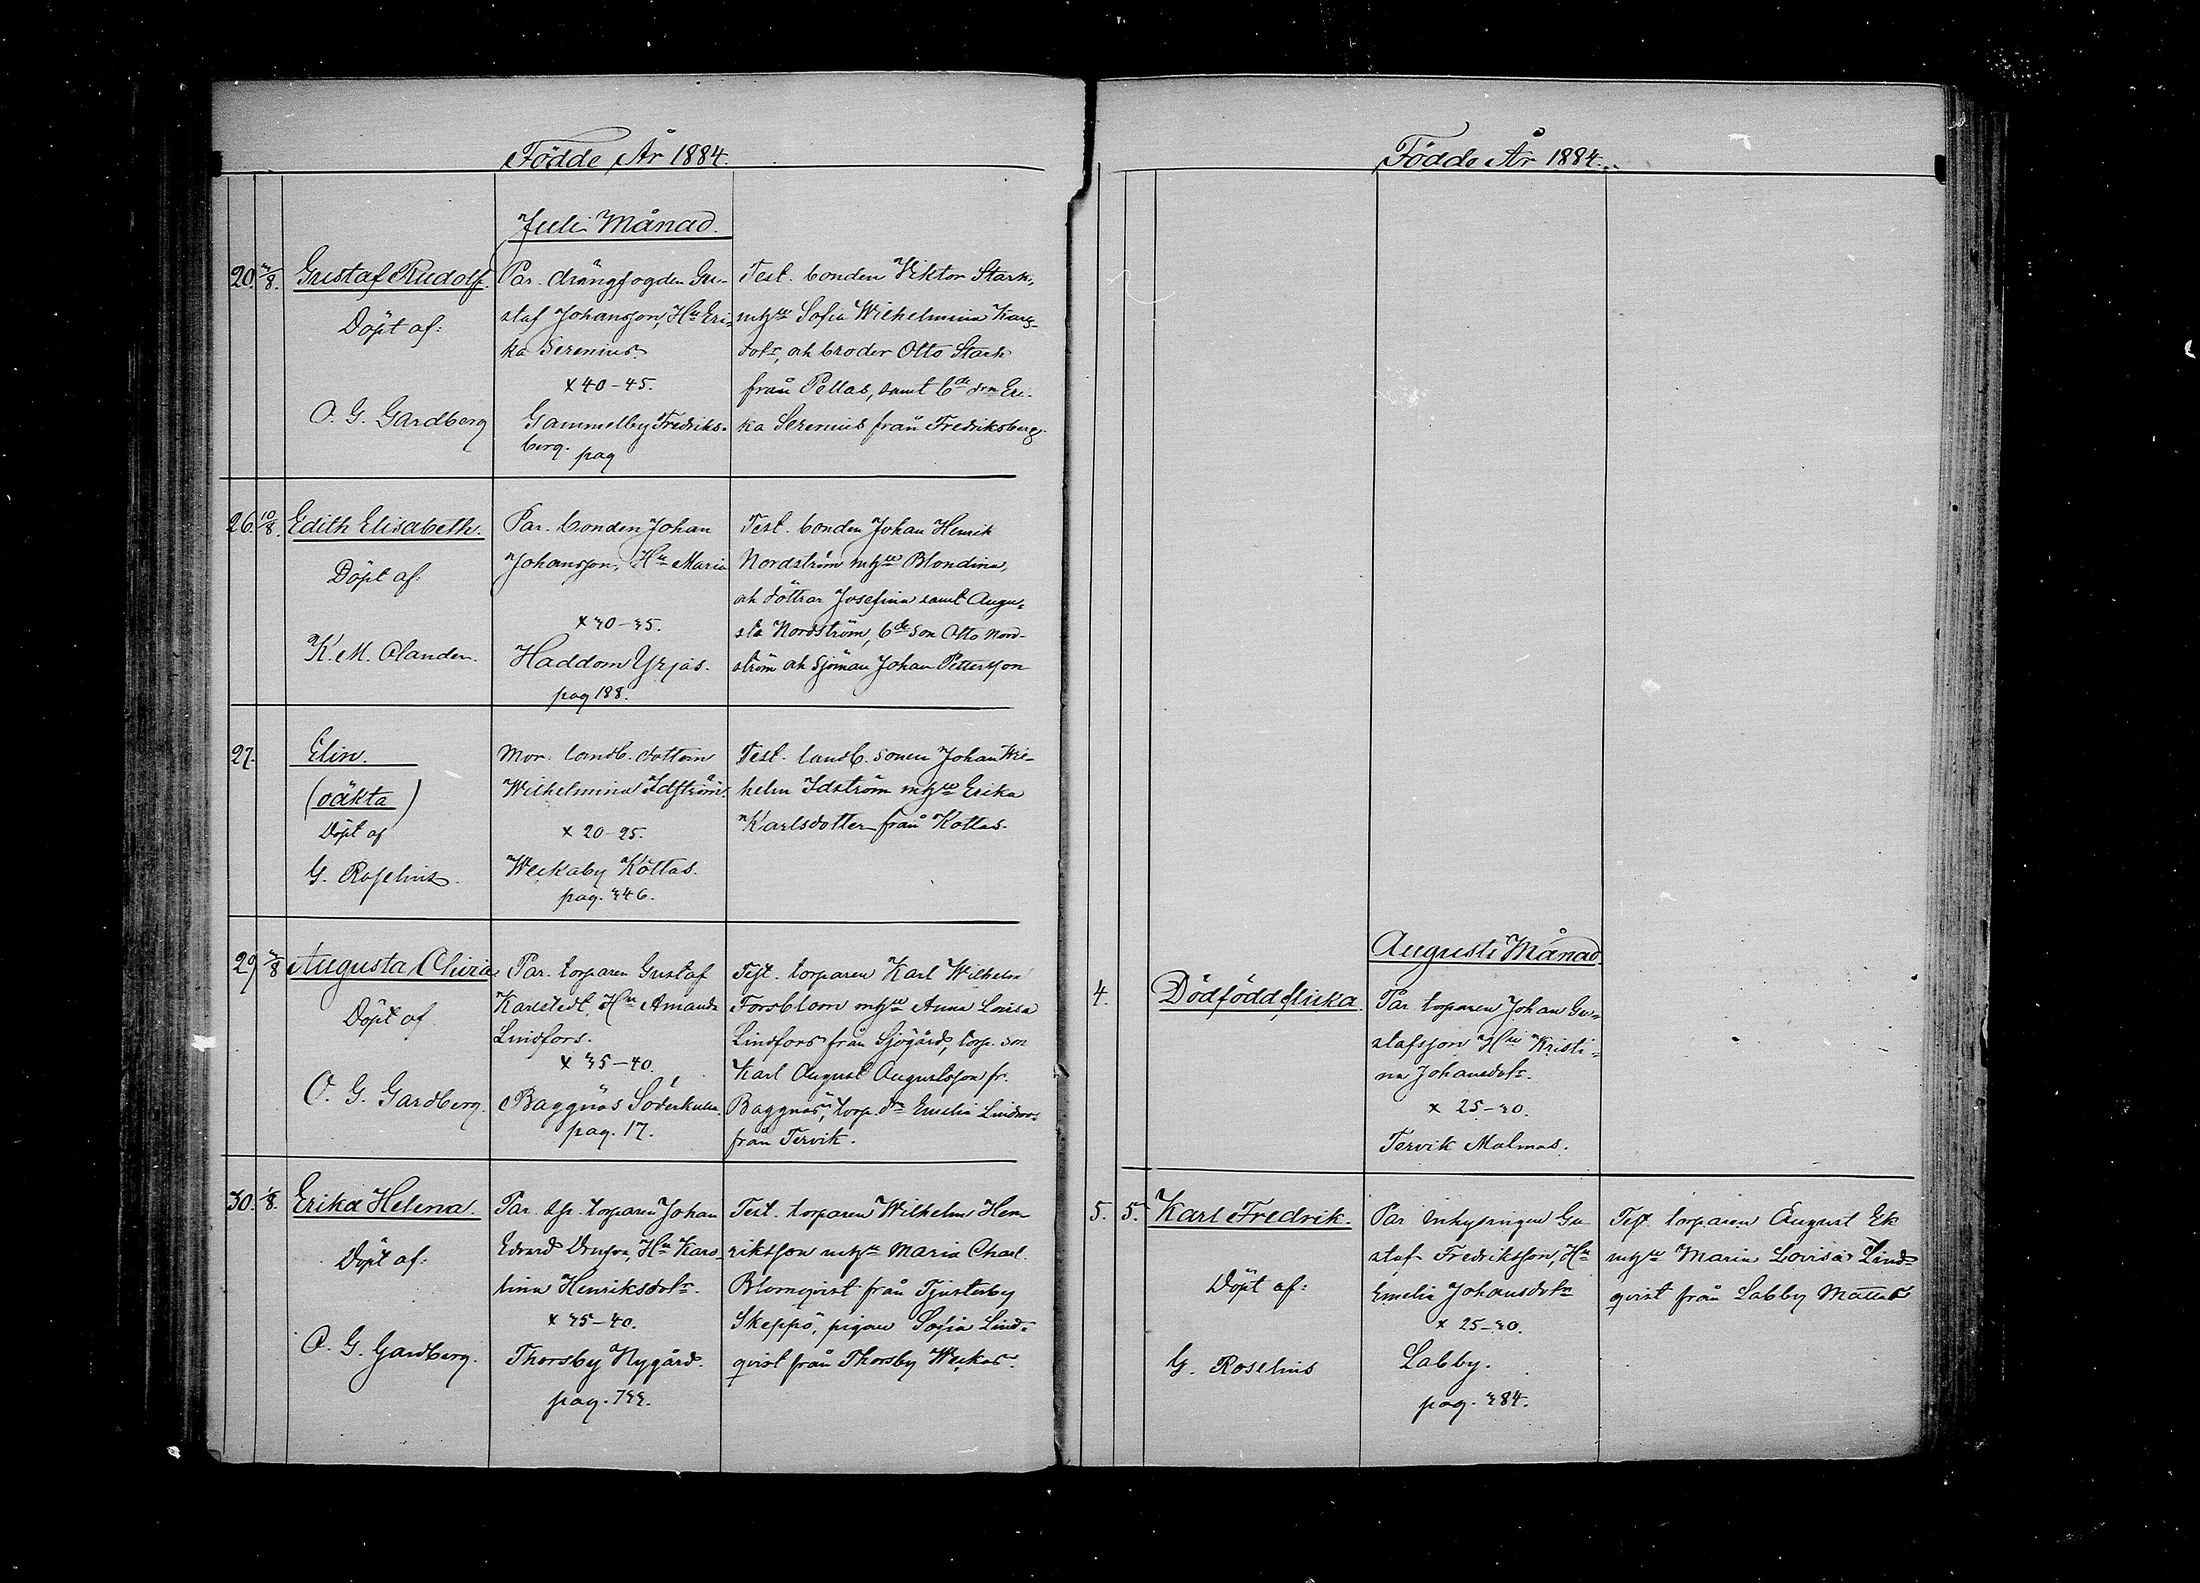 Födde År 1884.
Juli Månad.
20. 3/8. Gustaf Rudolf.
Döpt af:
O. G. Gardberg
Par. drängfogden Gu-
staf Johansson, Hu Eri-
ka Serenius.
x 40-45.
Gammelby Fredriks-
berg. pag
Test. bonden Viktor Stark,
mhu Sofia Wilhelmina Karls-
dotr, och broder Otto Stark
från Pellas, samt bde drn Eri-
ka Serenius från Fredriksberg.
26. 10/8. Edith Elisabeth.
Döpt af:
K. M. Clander.
Par. bonden Johan
Johansson, Hu Maria
x 30-35.
Haddom Yrjas.
pag 188.
Test. bonden Johan Henrik
Nordström mhu Blondina,
och döttrar Josefina samt Augu-
sta Nordström, bde son Otto Nord-
ström och Sjöman Johan Pettersson
27. Elin.
(oäkta)
Döpt af
G. Roselius.
Mor. landb. dottern
Wilhelmina Idström.
x 20-25.
Weckaby Kottas.
pag. 346.
Test. landb. sonen Johan Wil-
helm Idström mhu Erika
Karlsdotter från Kottas.
29 3/8 Augusta Olivia
Döpt af
O. G. Gardberg.
Par. torparen Gustaf
Karlstedt, Hu Amanda
Lindfors.
x 35-40.
Baggnäs Söderkulla.
pag. 17.
Test. torparen Karl Wilhelm
Forsblom mhu Anna Lovisa
Lindfors från Sjögård, torp. son
Karl August Augustsson fr.
Baggnäs, torp. drn Emelia Lindroos
från Tervik.
30. 1/8. Erika Helena.
Döpt af:
O. G. Gardberg.
Par. torparen Johan
Edvard Hu Karo-
lina Henriksdotr.
x 35-40.
Thorsby Nygård.
pag. 733.
Test. torparen Wilhelm Hen-
riksson mhu Maria Charl.
Blomqvist från Tjusterby
Skeppö, pigan Sofia Lind-
qvist från Thorsby Weckas.
Födde År 1884.
Augusti Månad.
4. Dödfödd flicka
Par. torparen Johan Gu-
stafsson Hu Kristi-
na Johansdotr.
x 25-30.
Tervik Malmas.
5. 5. Karl Fredrik.
Döpt af:
G. Roselius
Par inhysingen Gu-
staf Fredriksson, Hu
Emelia Johansdotr
x 25-30.
Labby.
pag. 384.
Test. torparen August Ek
mhu Maria Lovisa Lind-
qvist från Labby Mattas